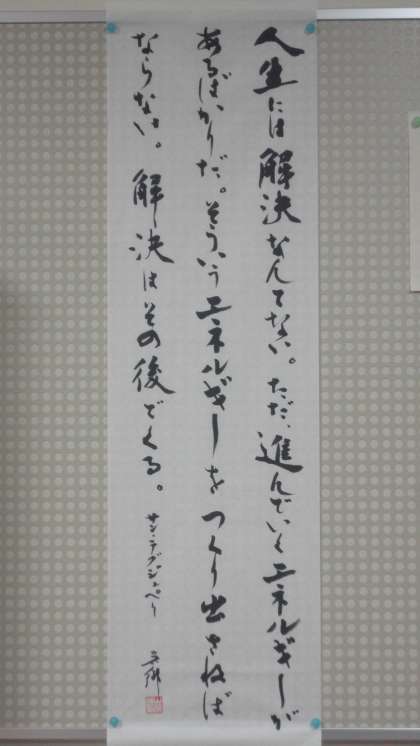 人生には解決なんてない。ただ、進んでいくエネルギーが
あるばかりだ。そういうエネルギーをつくり出さねば
ならない。解決はその後でくる。
サン・テグジュペリ